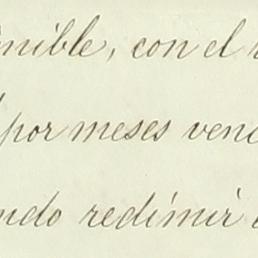 nible, con el
por meses venc
ndo redimir